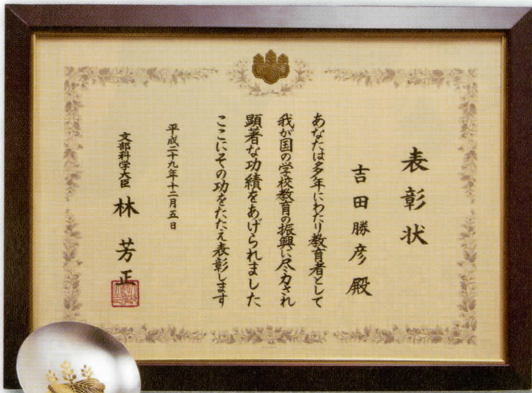 表彰状
吉田勝彦殿
あなたは多年にわたり教育者として
我が国の学校教育の振興に尽力され
顕著な功績をあげられました
ここにその功をたたえ表彰します
平成二十九年十二月五日
文部科学大臣 林 芳正